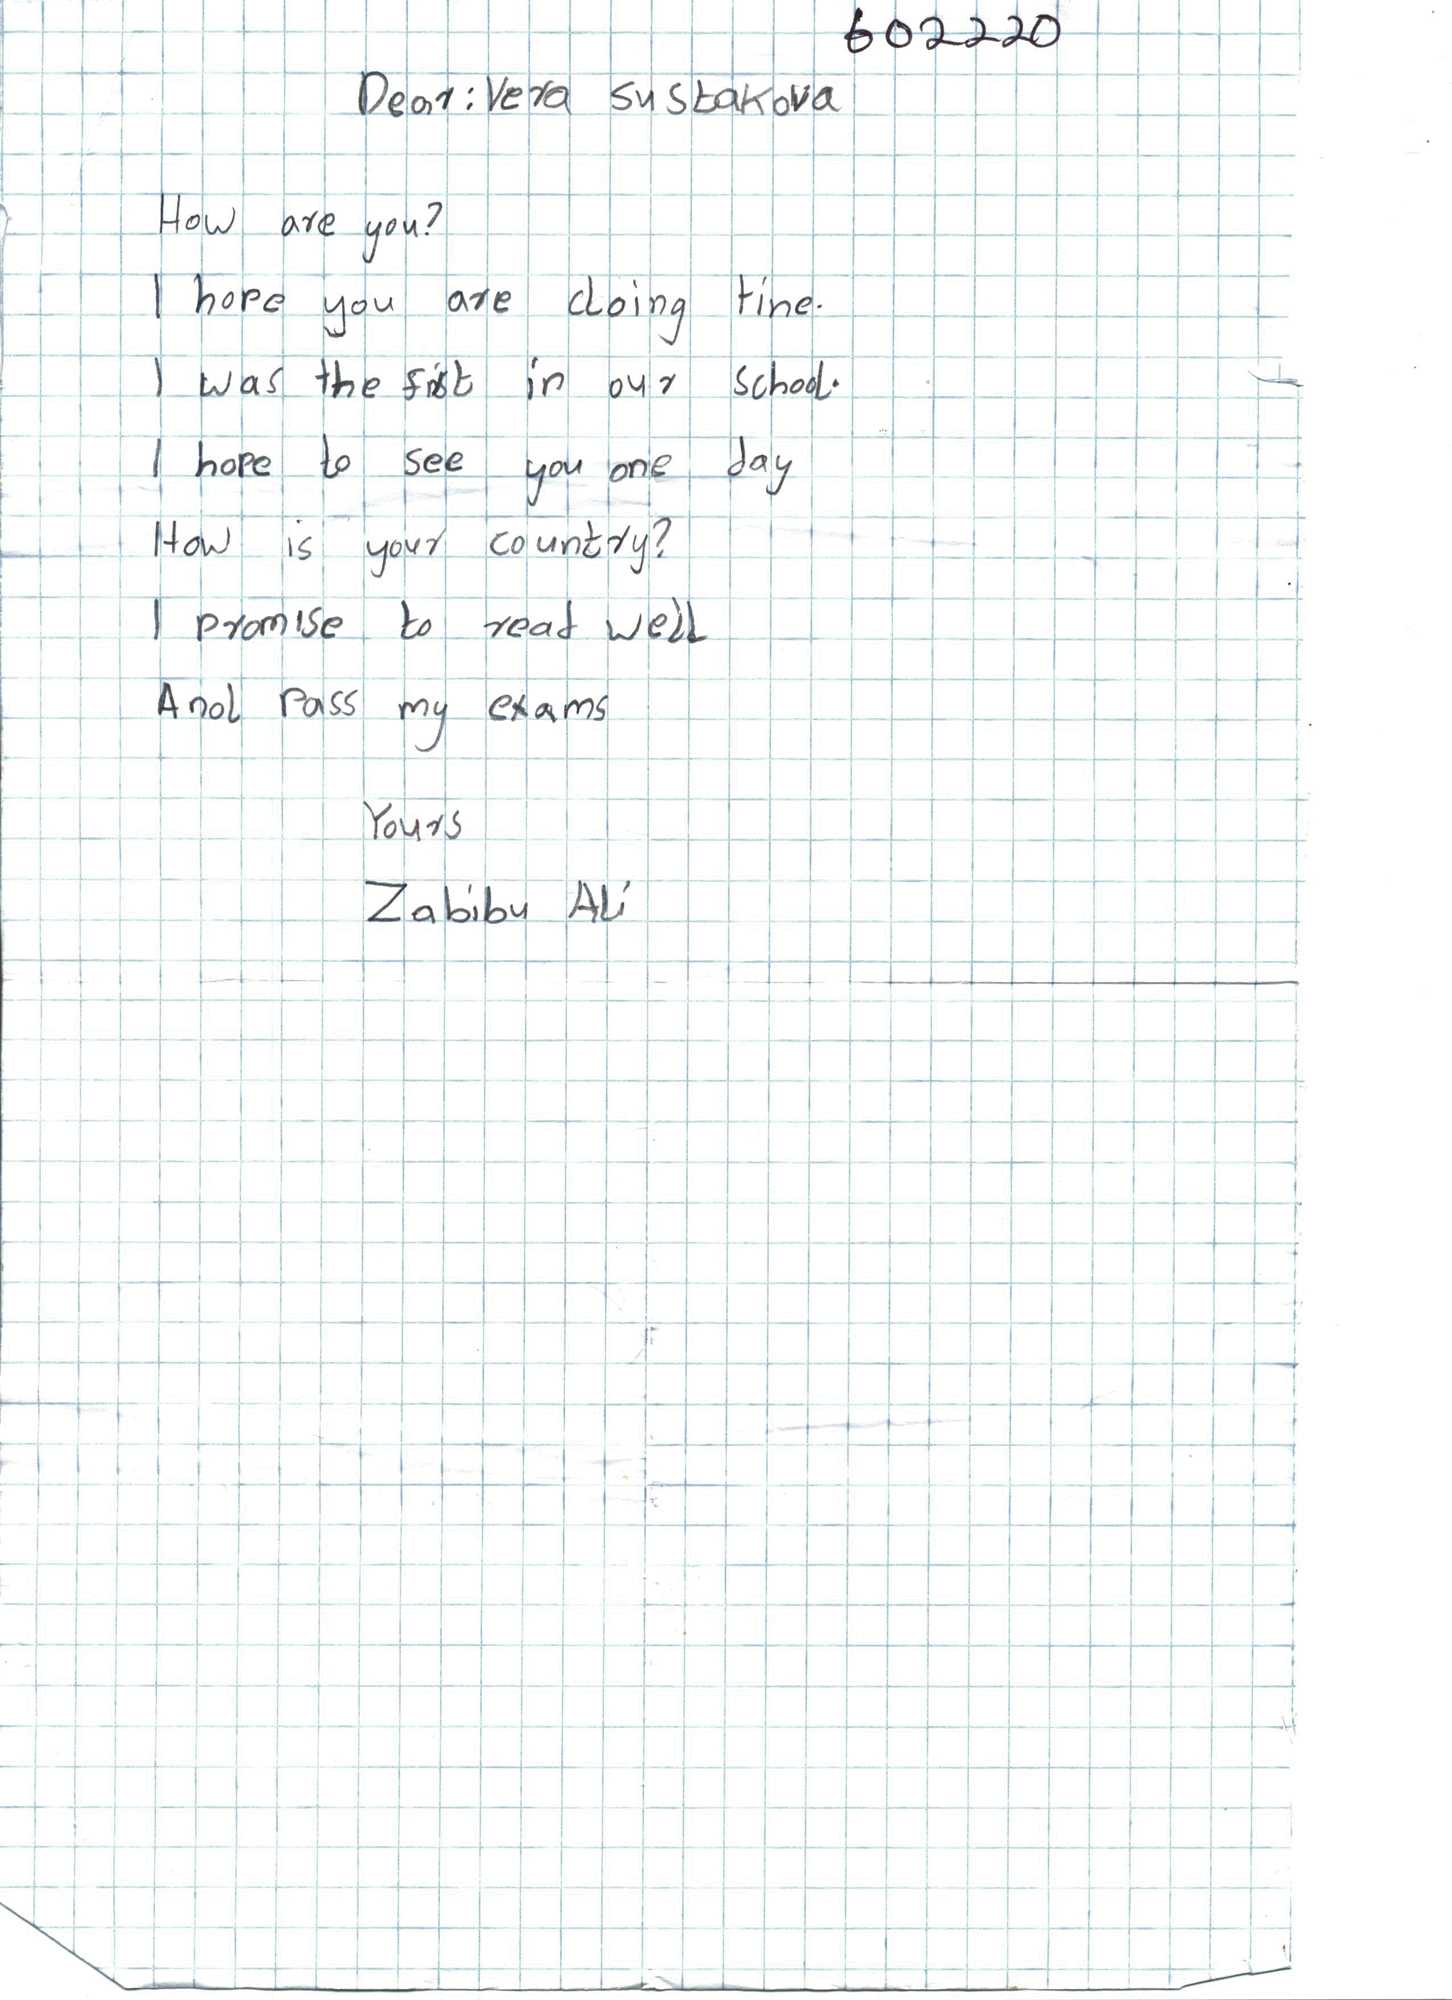 602220
Dear: Vera Sustakova
How are you?
I hope you are doing fine.
I was the fist in our school.
I hope to see you one day
How is your country?
I promise to read well
And Pass my exams
Yours
Zabibu Ali